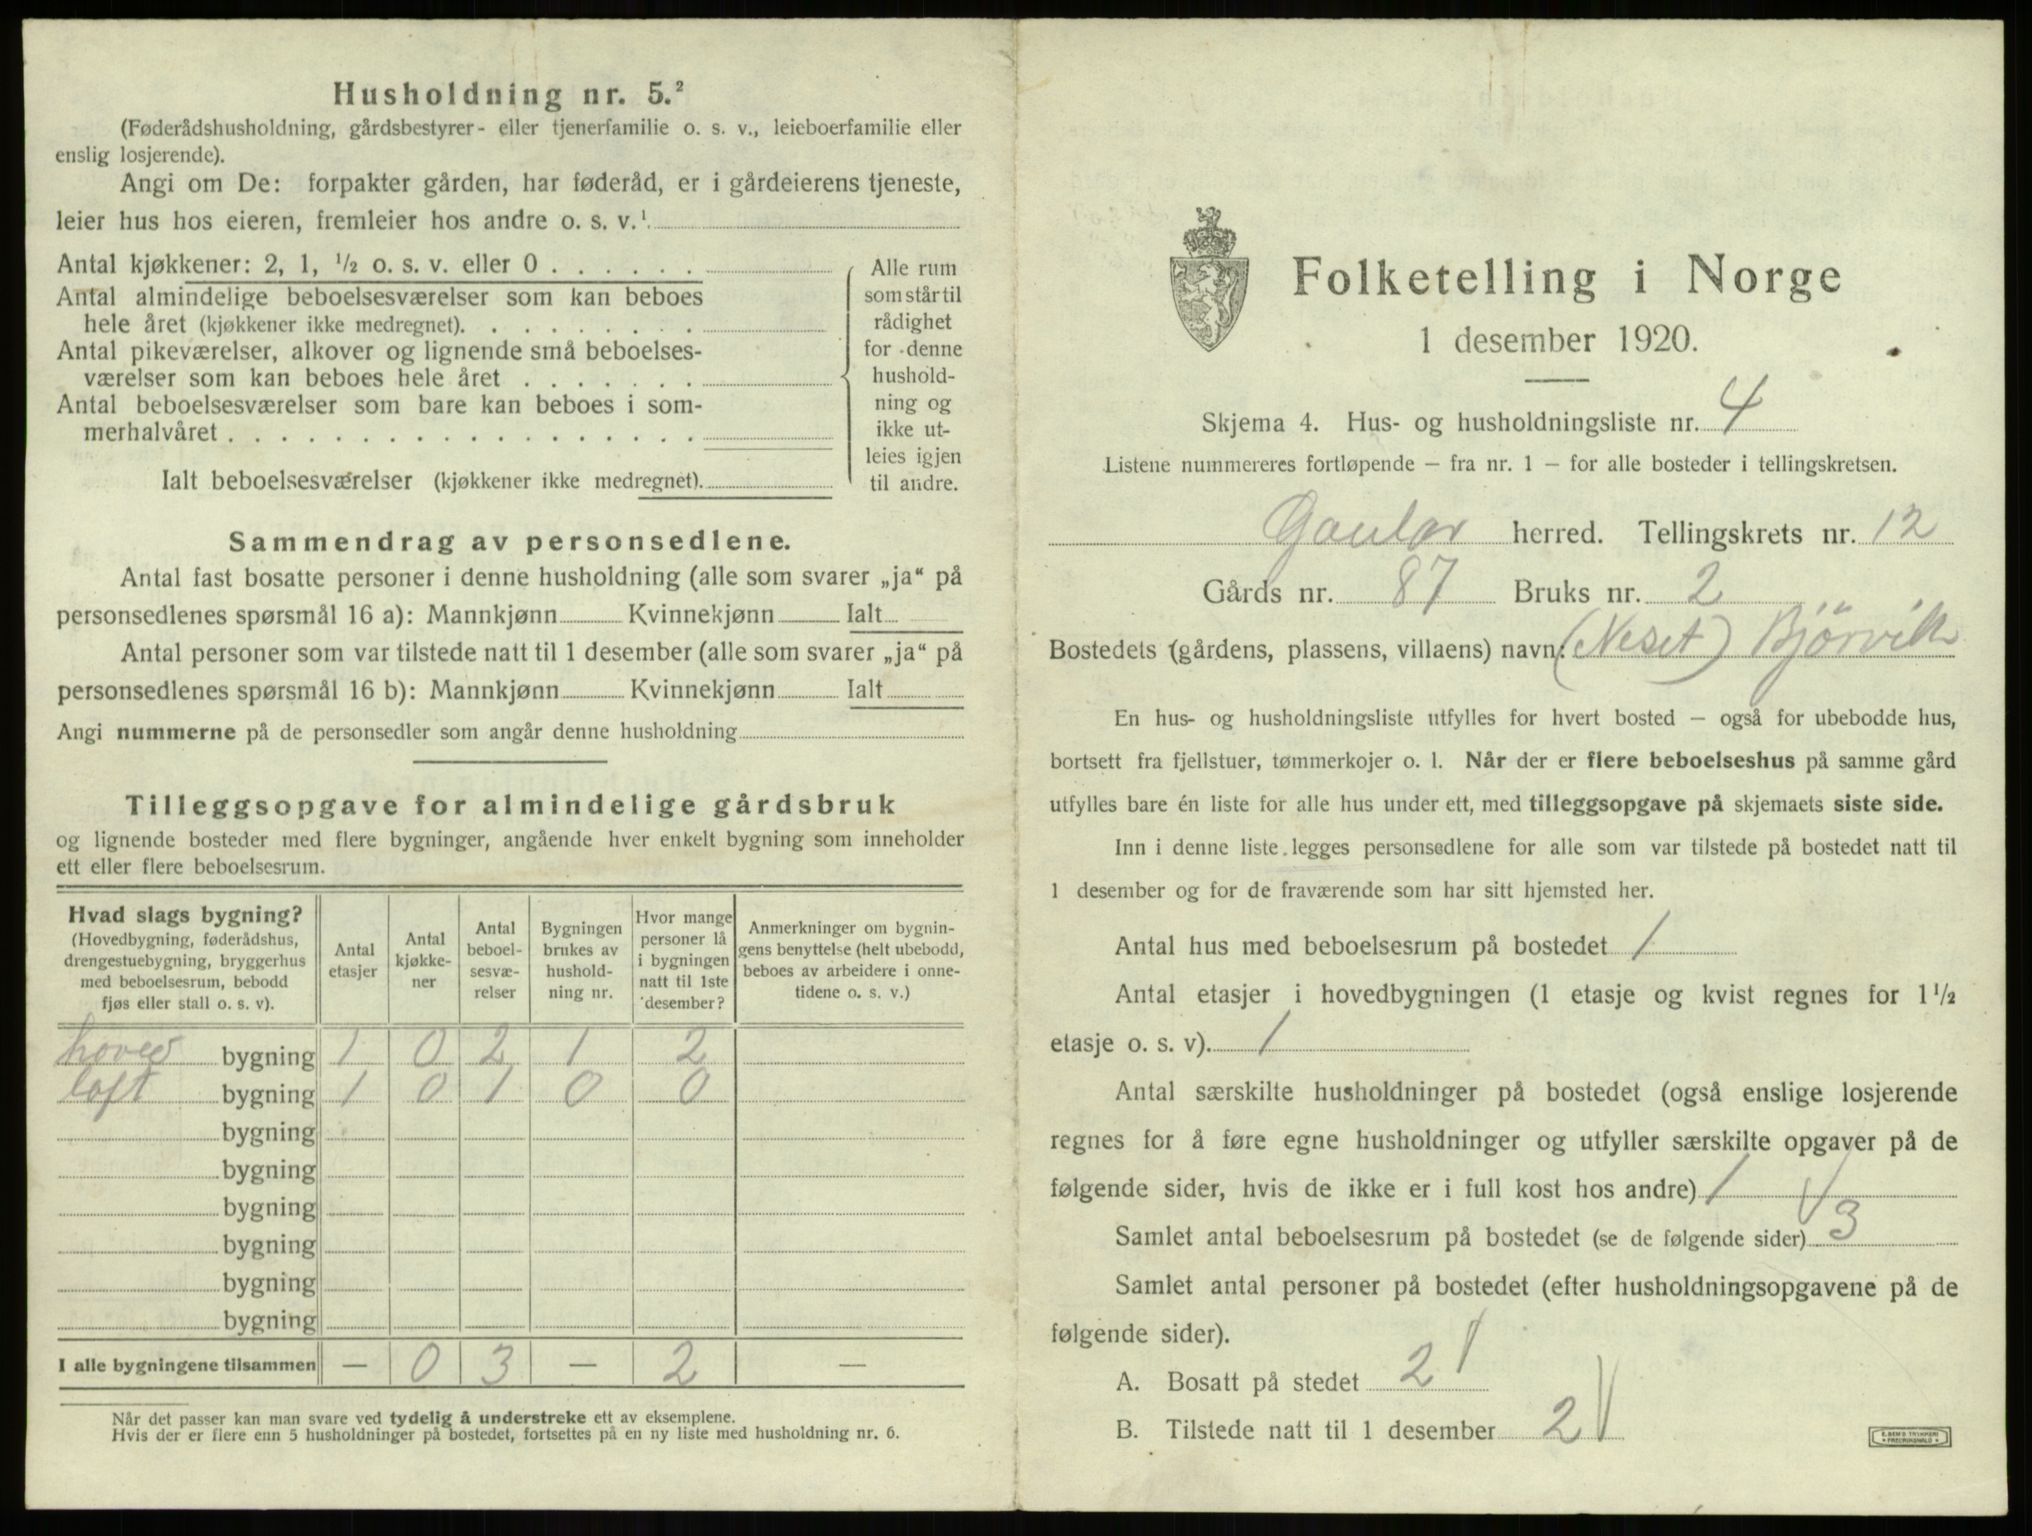 Husholdning nr. 5.²
(Føderådshusholdning, gårdsbestyrer- eller tjenerfamilie o. s. v., leieboerfamilie eller
enslig losjerende).
Angi om De: forpakter gården, har føderåd, er i gårdeierens tjeneste,
leier hus hos eieren, fremleier hos andre o. s. v.¹
Antal kjøkkener: 2, 1, ½ o. s. v. eller 0 . . . . . .
Antal almindelige beboelsesværelser som kan beboes
hele året (kjøkkener ikke medregnet). . . . . . . . .
Antal pikeværelser, alkover og lignende små beboelses-
værelser som kan beboes hele året . . . . . . .
Antal beboelsesværelser som bare kan beboes i som-
merhalvåret . . . . . . . . . . . . . . . . . .
Ialt beboelsesværelser (kjøkkener ikke medregnet).
Alle rum
som står til
rådighet
for denne
hushold-
ning og
ikke ut-
leies igjen
til andre.
Sammendrag av personsedlene.
Antal fast bosatte personer i denne husholdning (alle som svarer „ja“ på
personsedlenes spørsmål 16 a): Mannkjønn Kvinnekjønn Ialt
Antal personer som var tilstede natt til 1 desember (alle som svarer „ja“ på
personsedlenes spørsmål 16 b): Mannkjønn Kvinnekjønn Ialt
Angi nummerne på de personsedler som angår denne husholdning
Tilleggsopgave for almindelige gårdsbruk
og lignende bosteder med flere bygninger, angående hver enkelt bygning som inneholder
ett eller flere beboelsesrum.
Hvad slags bygning?
(Hovedbygning, føderådshus,
drengestuebygning, bryggerhus
med beboelsesrum, bebodd
fjøs eller stall o. s. v).
Antal
etasjer
Antal
kjøkke-
ner
Antal
beboel-
sesvæ-
relser
Bygningen
brukes av
hushold-
ning nr.
Hvor mange
personer lå
i bygningen
natt til 1ste
desember?
Anmerkninger om bygnin-
gens benyttelse (helt ubebodd,
beboes av arbeidere i onne-
tidene o. s. v.)
hoved bygning 1 0 2 1 2
loft bygning 1 0 1 0 0
bygning
bygning
bygning
bygning
bygning
bygning
I alle bygningene tilsammen — 0 3 — 2 —
Når det passer kan man svare ved tydelig å understreke ett av eksemplene.
Hvis der er flere enn 5 husholdninger på bostedet, fortsettes på en ny liste med husholdning nr. 6.
Folketelling i Norge
1 desember 1920.
Skjema 4. Hus- og husholdningsliste nr. 4
Listene nummereres fortløpende – fra nr. 1 – for alle bosteder i tellingskretsen.
Gaular herred. Tellingskrets nr. 12
Gårds nr. 87 Bruks nr. 2
Bostedets (gårdens, plassens, villaens) navn: (Neset) Bjørvik
En hus- og husholdningsliste utfylles for hvert bosted – også for ubebodde hus,
bortsett fra fjellstuer, tømmerkojer o. l. Når der er flere beboelseshus på samme gård
utfylles bare én liste for alle hus under ett, med tilleggsopgave på skjemaets siste side.
Inn i denne liste legges personsedlene for alle som var tilstede på bostedet natt til
1 desember og for de fraværende som har sitt hjemsted her.
Antal hus med beboelsesrum på bostedet 1
Antal etasjer i hovedbygningen (1 etasje og kvist regnes for 1½
etasje o. s. v). 1
Antal særskilte husholdninger på bostedet (også enslige losjerende
regnes for å føre egne husholdninger og utfyller særskilte opgaver på de
følgende sider, hvis de ikke er i full kost hos andre) 1
Samlet antal beboelsesrum på bostedet (se de følgende sider) 3
Samlet antal personer på bostedet (efter husholdningsopgavene på de
følgende sider).
A. Bosatt på stedet 2
B. Tilstede natt til 1 desember 2